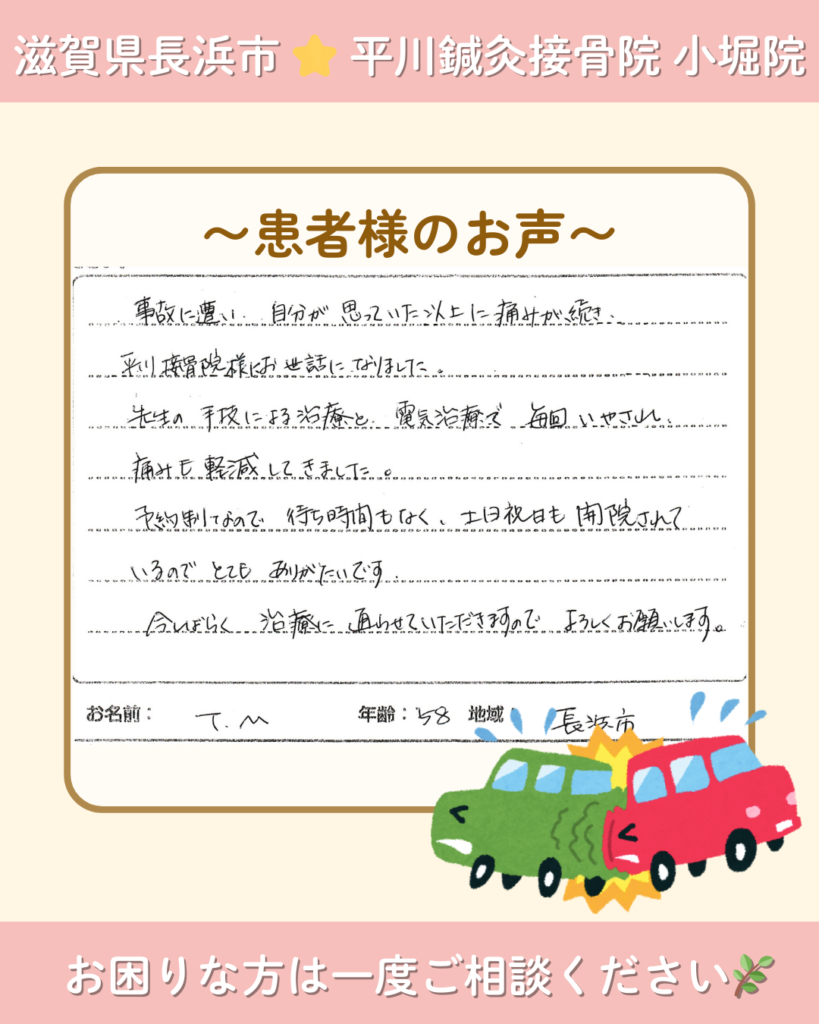 滋賀県長浜市⭐平川鍼灸接骨院 小堀院
～患者様のお声～
事故に遭い、自分が思っていた以上に痛みが続き、
平川接骨院様にお世話になりました。
先生の手技による治療と、電気治療で毎回いやされ、
痛みも軽減してきました。
予約制なので待ち時間もなく、土日祝日も開院されて
いるのでとてもありがたいです。
今しばらく治療に通わせていただきますので よろしくお願いします。
お名前： T.M 年齢：58 地域： 長浜市
お困りな方は一度ご相談ください🌿